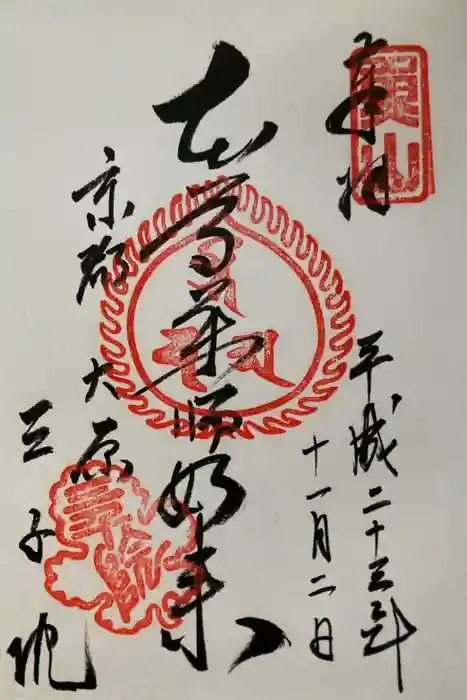 奉拝
平成二十三年
十一月二日
本尊薬師如来
京都大原
三千院